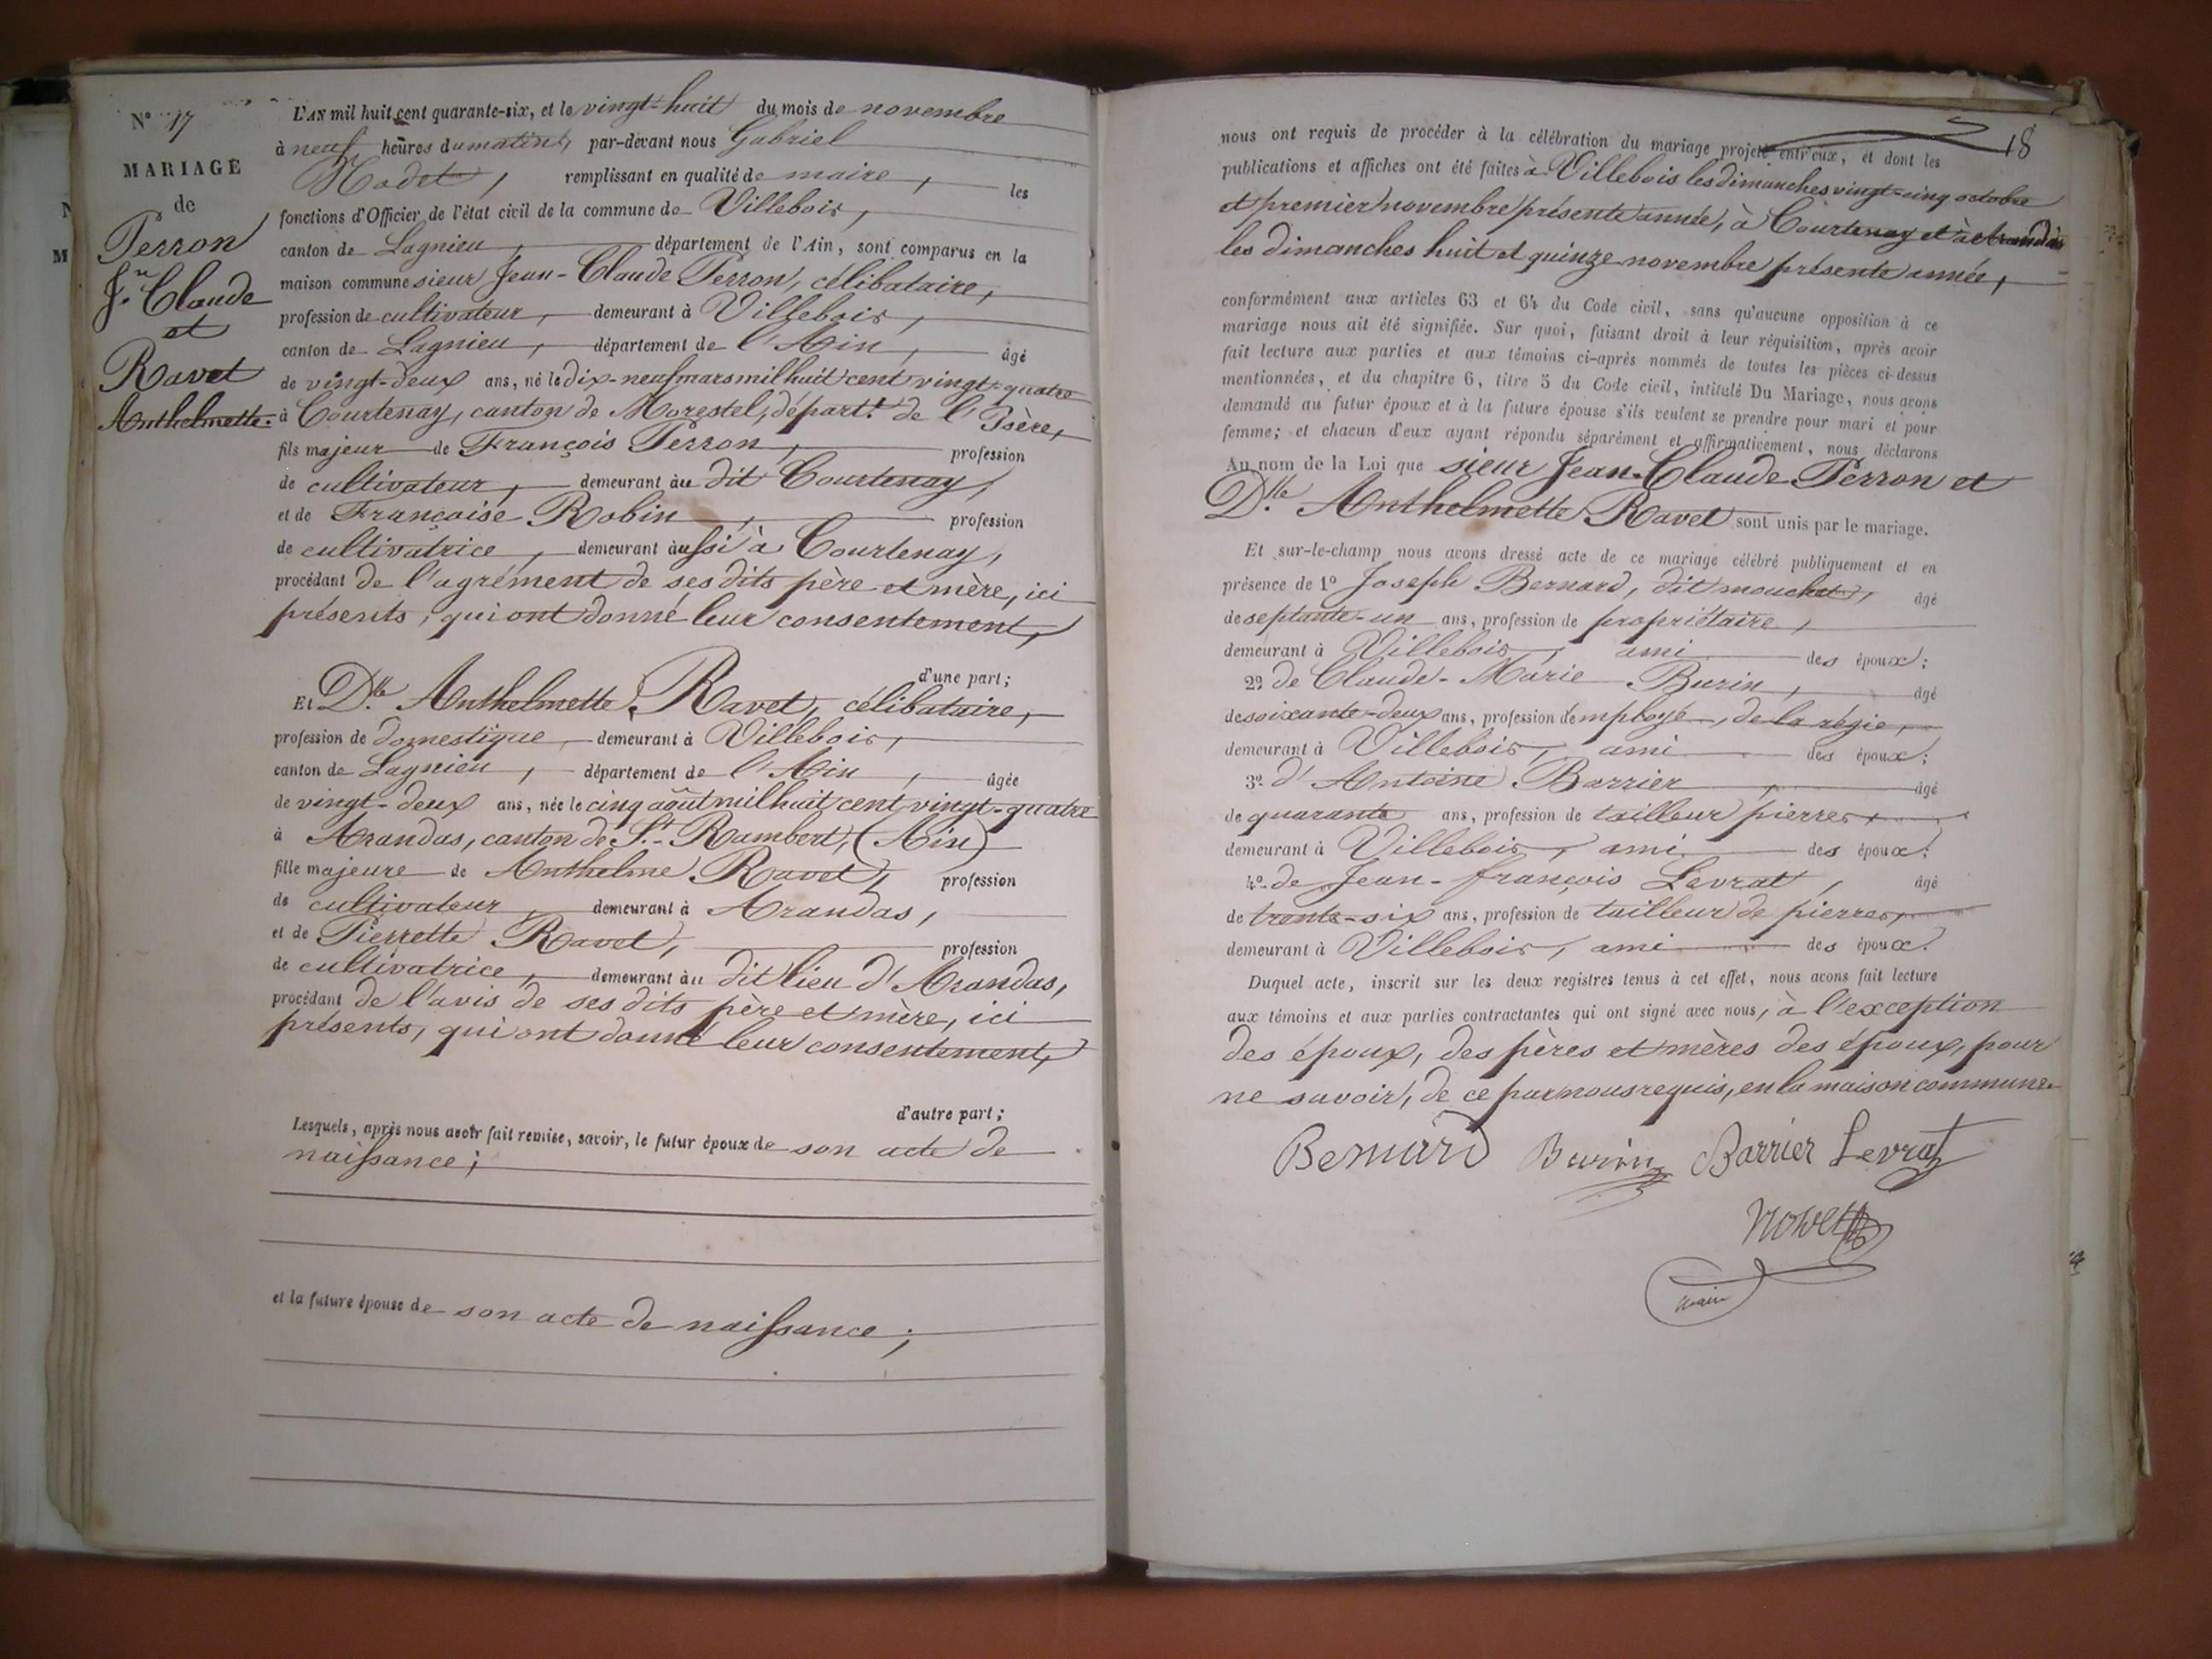 N° 17
MARIAGE
de
Perron
Jn. Claude
et
Ravet
Anthelmette.
L'AN mil huit cent quarante-six, et le vingt-huit du mois de novembre
à neuf heures du matin, par-devant nous Gabriel
remplissant en qualité de maire, les
fonctions d'Officier de l'état civil de la commune de Villebois,
canton de Lagnieu, département de l'Ain, sont comparus en la
maison commune sieur Jean-Claude Perron, célibataire,
profession de cultivateur, demeurant à Villebois,
canton de Lagnieu, département de l'Ain, âgé
de vingt-deux ans, né le dix-neuf mars mil huit cent vingt-quatre
à Courtenay, canton de Morestel, départ.t de l'Isère,
fils majeur de François Perron, profession
de cultivateur, demeurant au dit Courtenay,
et de Françoise Robin, profession
de cultivatrice, demeurant aussi à Courtenay,
procédant de l'agrément de ses dits père et mère, ici
présents, qui ont donné leur consentement,
d'une part;
Et D.lle Anthelmette Ravet, célibataire,
profession de domestique, demeurant à Villebois,
canton de Lagnieu, département de l'Ain, âgée
de vingt-deux ans, née le cinq août mil huit cent vingt-quatre
à Arandas, canton de St.-Rambert, (Ain)
fille majeure de Anthelme Ravet, profession
de cultivateur, demeurant à Arandas,
et de Pierrette Ravet, profession
de cultivatrice, demeurant au dit lieu d'Arandas,
procédant de l'avis de ses dits père et mère, ici
présents, qui ont donné leur consentement,
d'autre part;
Lesquels, après nous avoir fait remise, savoir, le futur époux de son acte de
naissance;
et la future épouse de son acte de naissance;
18
nous ont requis de procéder à la célébration du mariage projeté entr'eux, et dont les
publications et affiches ont été faites à Villebois les dimanches vingt-cinq octobre
et premier novembre présente année, à Courtenay et à Arandas
les dimanches huit et quinze novembre présente année,
conformément aux articles 63 et 64 du Code civil, sans qu'aucune opposition à ce
mariage nous ait été signifiée. Sur quoi, faisant droit à leur réquisition, après avoir
fait lecture aux parties et aux témoins ci-après nommés de toutes les pièces ci-dessus
mentionnées, et du chapitre 6, titre 5 du Code civil, intitulé Du Mariage, nous avons
demandé au futur époux et à la future épouse s'ils veulent se prendre pour mari et pour
femme; et chacun d'eux ayant répondu séparément et affirmativement, nous déclarons
Au nom de la Loi que sieur Jean-Claude Perron et
D.lle Anthelmette Ravet sont unis par le mariage.
Et sur-le-champ nous avons dressé acte de ce mariage célébré publiquement et en
présence de 1° Joseph Bernard, dit mouchet, âgé
de septante-un ans, profession de propriétaire,
demeurant à Villebois, ami des époux;
2° de Claude-Marie Burin, âgé
de soixante-deux ans, profession d'employé, de la régie,
demeurant à Villebois, ami des époux;
3° d'Antoine Barrier, âgé
de quarante ans, profession de tailleur pierres,
demeurant à Villebois, ami des époux;
4° de Jean-françois Levrat, âgé
de trente-six ans, profession de tailleur de pierres,
demeurant à Villebois, ami des époux.
Duquel acte, inscrit sur les deux registres tenus à cet effet, nous avons fait lecture
aux témoins et aux parties contractantes qui ont signé avec nous, à l'exception
des époux, des pères et mères des époux, pour
ne savoir, de ce par nous requis, en la maison commune.
Bernard Burin Barrier Levrat
maire